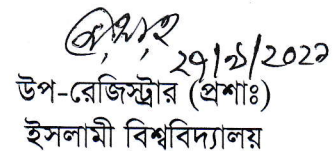 ২৭/৯/২০২১
উপ-রেজিস্ট্রার (প্রশাঃ)
ইসলামী বিশ্ববিদ্যালয়